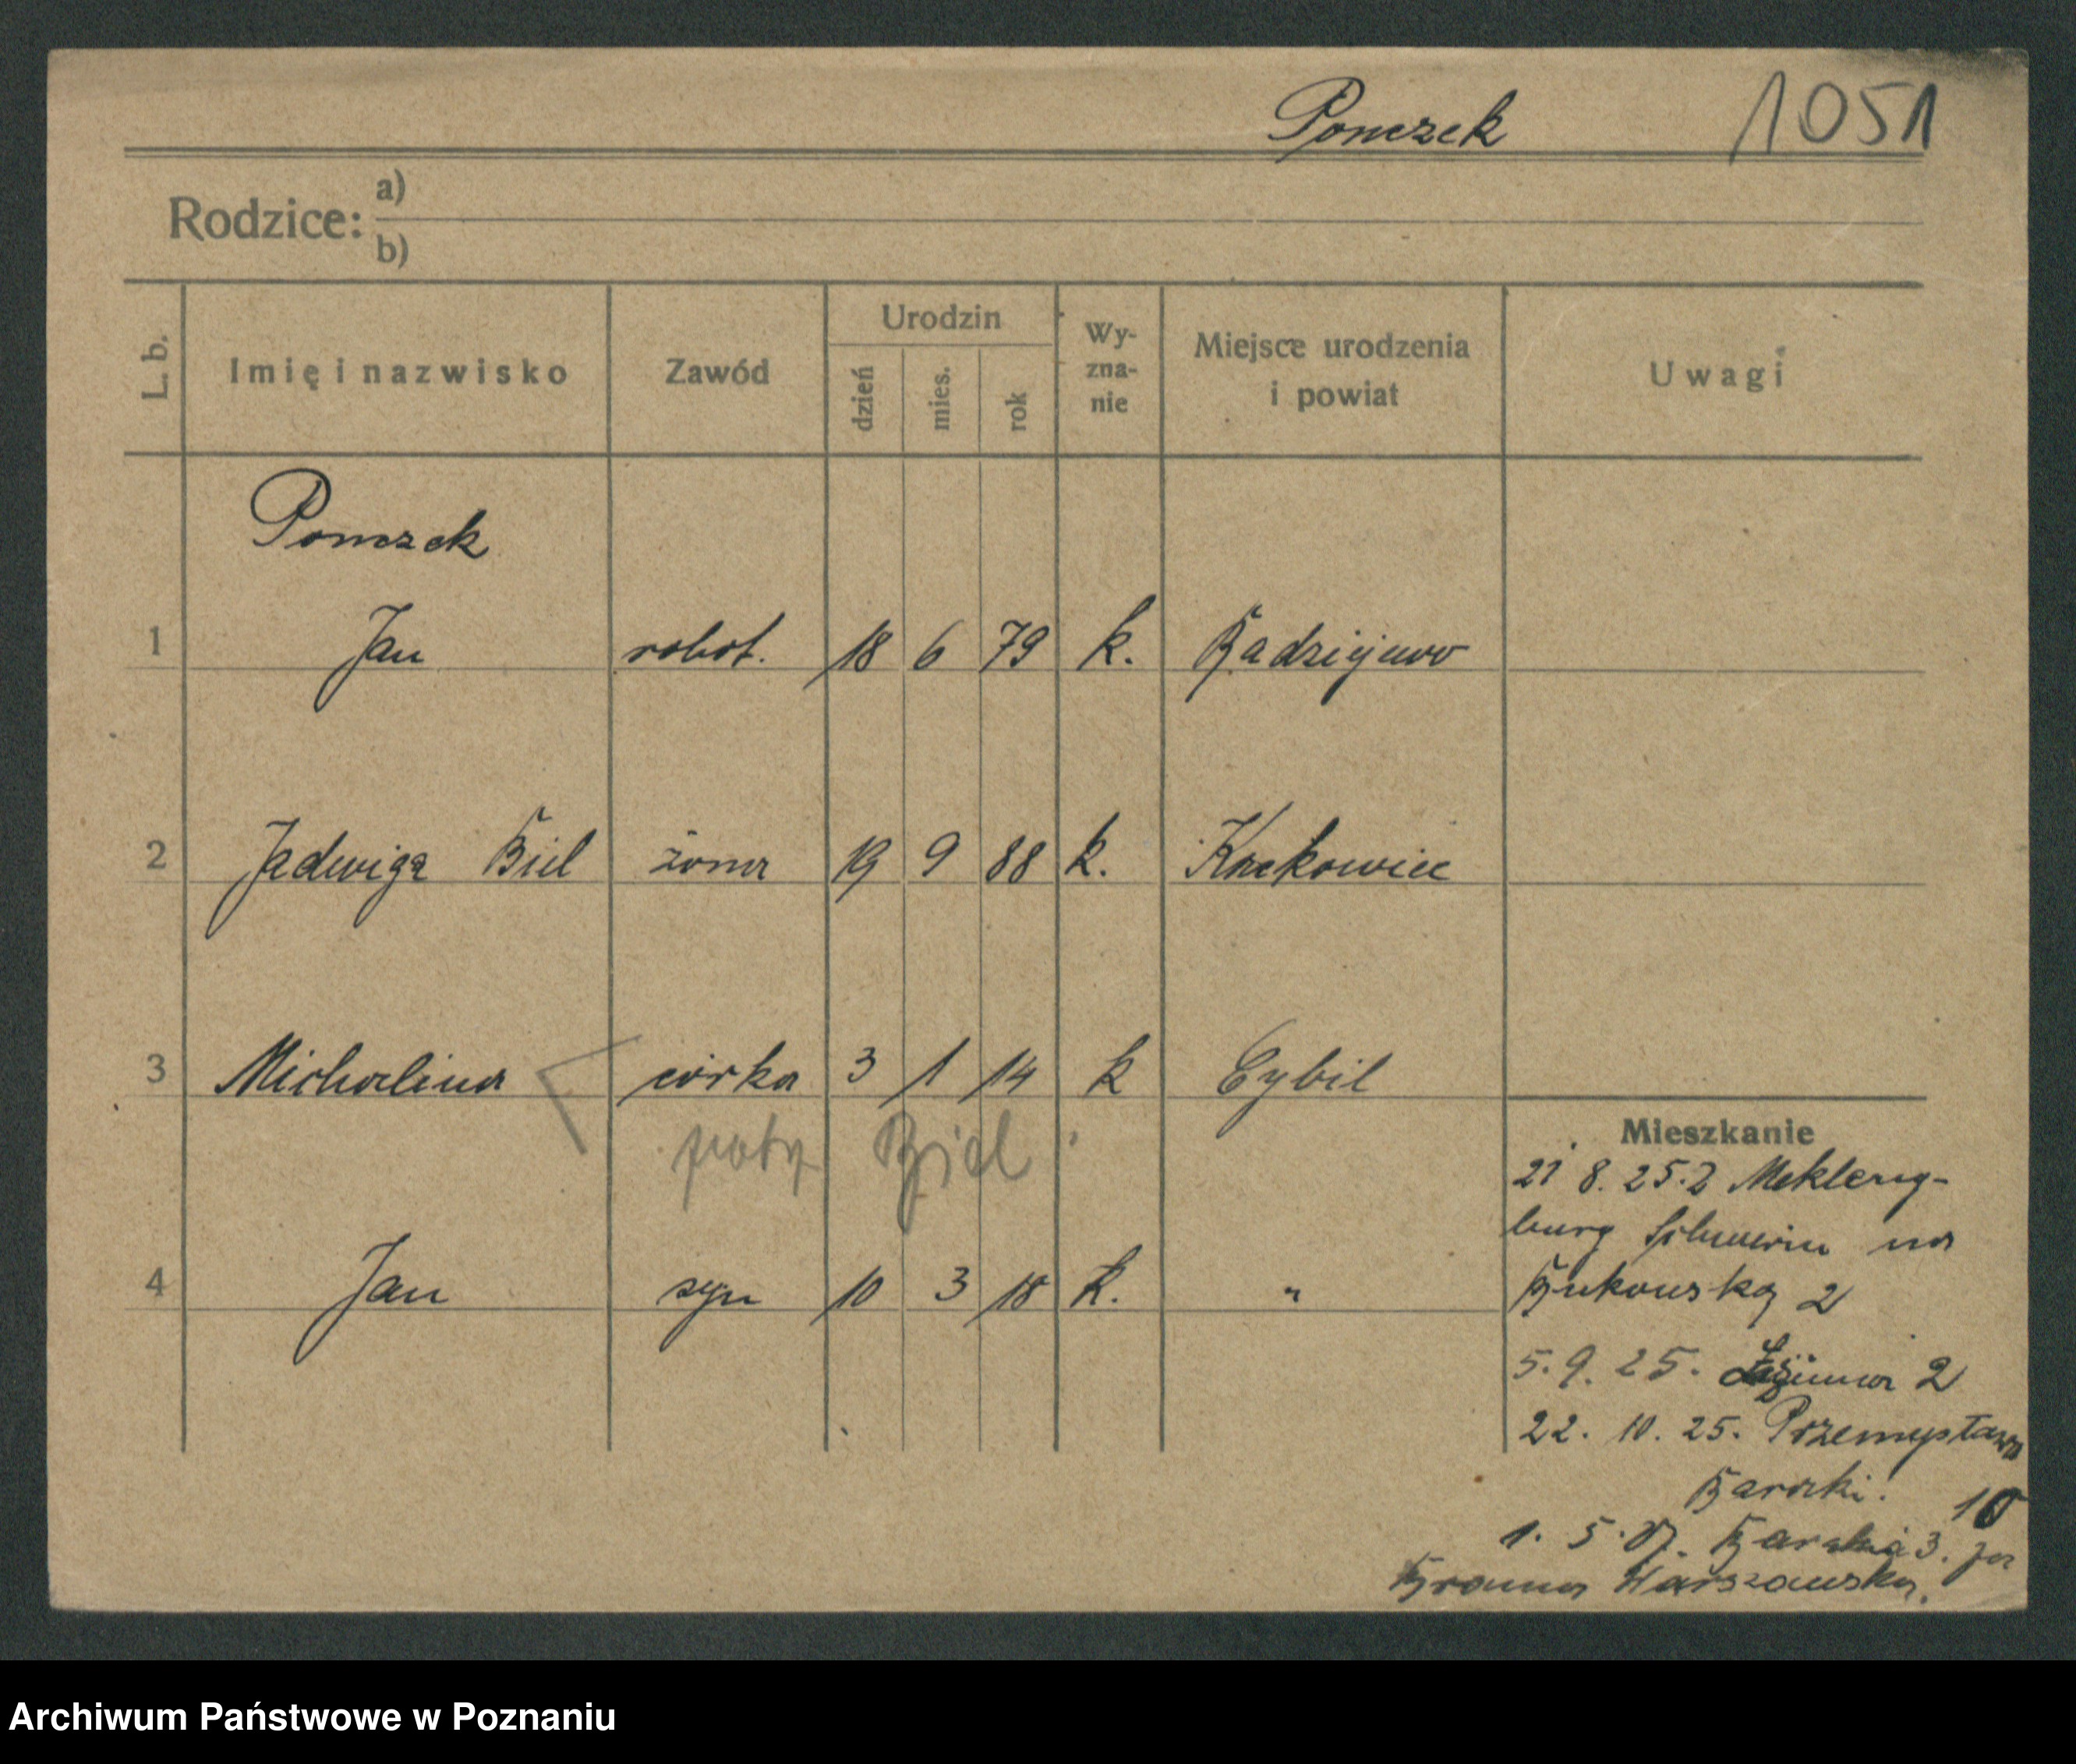 Pomczek 1051
Rodzice: a)
b)
L. b. Imię i nazwisko Zawód Urodzin dzień mies. rok Wy-zna-nie Miejsce urodzenia i powiat Uwagi
Pomczek
1 Jan robot. 18 6 79 k. Badziejewo
2 Jadwiga Biel żona 19 9 88 k. Krakowiec
3 Michalina córka 3 1 14 k Cybil
Biel
Mieszkanie
21 8. 25. Z Meklerg-
burg Schwerin na
4 Jan syn 10 3 18 k. "
Bukowską 2
5. 9. 25. 2
22. 10. 25. Przemysława
Baraki. 10
1. 5. 27. 3. za
Brama Warszawska.
Archiwum Państwowe w Poznaniu